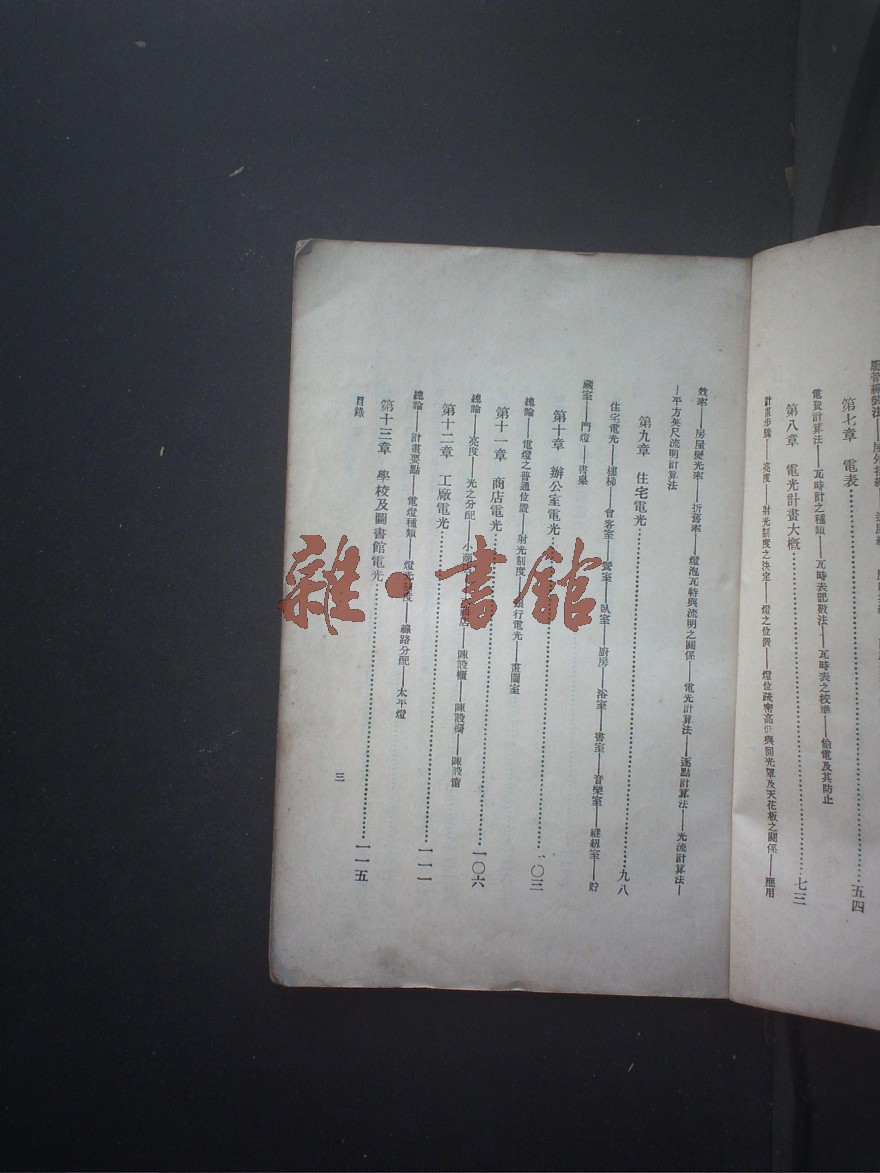 第七章 電表……五四
電費計算法——瓦時計之種類——瓦時表記數法——瓦時表之校準——偷電及其防止
第八章 電光計畫大概……七三
計畫步驟——亮度——射光制度之決定——燈之位置——燈位疏密高低與回光罩及天花板之關係——應用
效率——房屋變光率——折舊率——燈泡瓦特與流明之關係——電光計算法——逐點計算法——光流計算法—
—平方英尺流明計算法
第九章 住宅電光……九八
住宅電光——樓梯——會客室——餐室——臥室——廚房——浴室——書室——音樂室——縫紉室——貯
藏室——門燈——書桌
第十章 辦公室電光……一〇三
總論——電燈之普通位置——射光制度——銀行電光——畫圖室
第十一章 商店電光……一〇六
總論——亮度——光之分配——小商店——陳設櫃——陳設櫥——陳設窗
第十二章 工廠電光……一一一
總論——計畫要點——電燈種類——燈光制度——線路分配——太平燈
第十三章 學校及圖書館電光……一一五
目錄
三
雜·書館